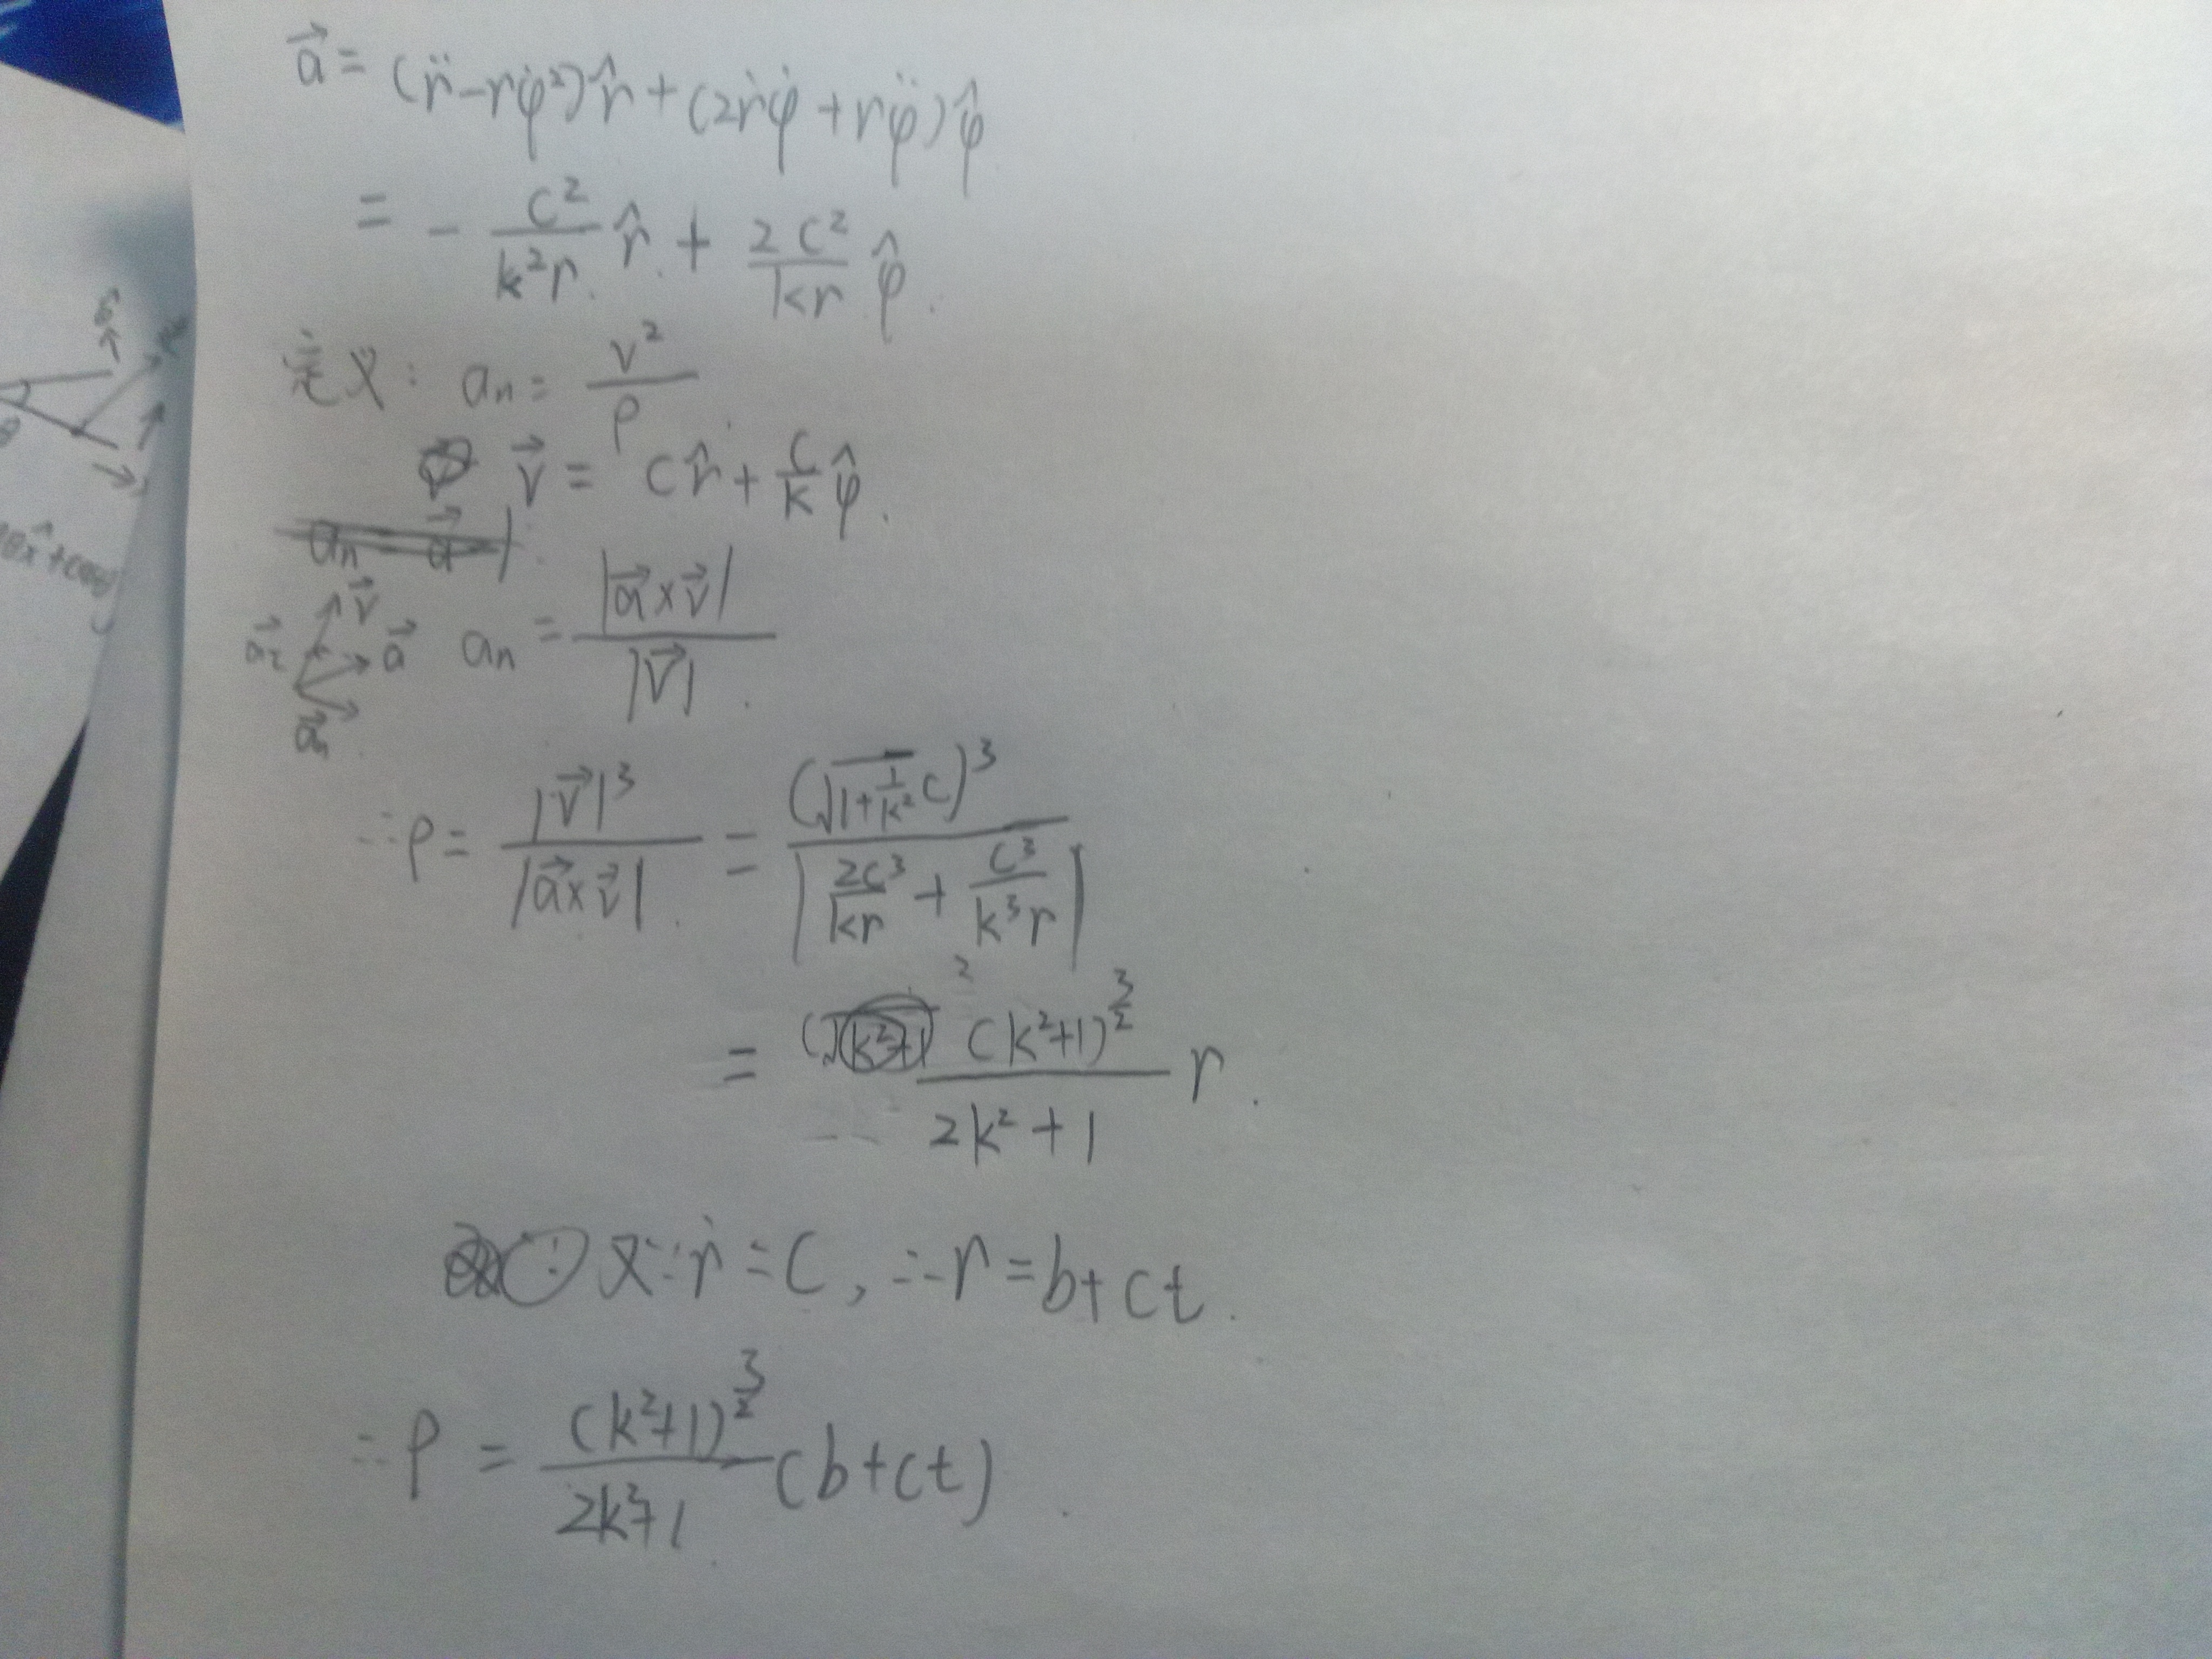 a⃗ = (r̈ - rφ̇²)r̂ + (2ṙφ̇ + rφ̈)φ̂
= - c²/(k²r) r̂ + 2c²/(kr) φ̂.
定义: aₙ = v²/ρ
v⃗ = cr̂ + c/k φ̂.
v⃗ a⃗ aₙ = |a⃗×v⃗|/|v⃗|.
∴ρ = |v⃗|³/|a⃗×v⃗| = (√(1+1/k²) c)³/|2c³/(kr) + c³/(k³r)|
= (k²+1)^(3/2)/(2k²+1) r.
又∵ṙ = c, ∴r = b+ct.
∴ρ = (k²+1)^(3/2)/(2k²+1) (b+ct)